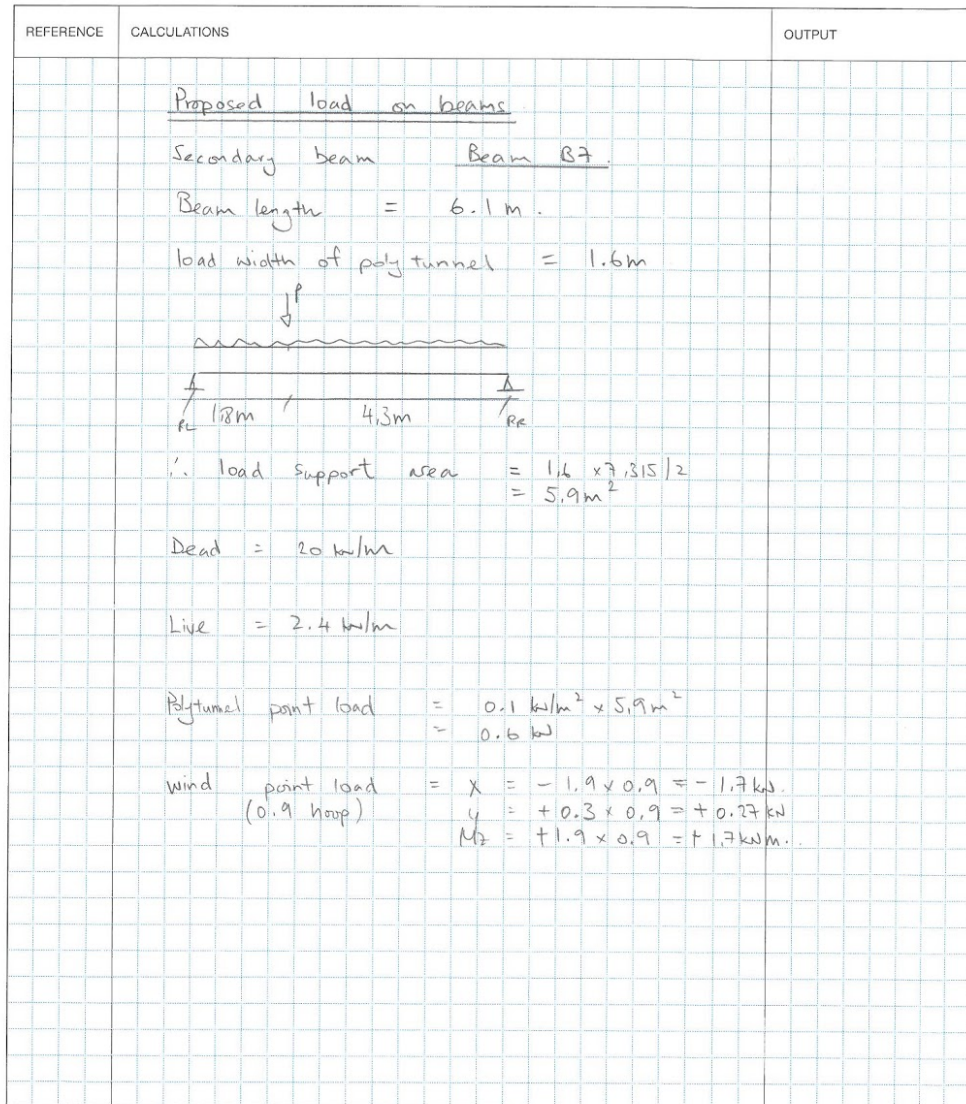 REFERENCE CALCULATIONS OUTPUT
Proposed load on beams.
Secondary beam Beam B7.
Beam length = 6.1 m.
load width of poly tunnel = 1.6m
P
RL 1.8m 4.3m RR
∴ load support area = 1.6 x 7.315/2
= 5.9m²
Dead = 20 kN/m
Live = 2.4 kN/m
Polytunnel point load = 0.1 kN/m² x 5.9m²
= 0.6 kN
wind point load = X = - 1.9 x 0.9 = - 1.7kN.
(0.9 hoop) y = + 0.3 x 0.9 = + 0.27kN
Mz = +1.9 x 0.9 = + 1.7kNm.